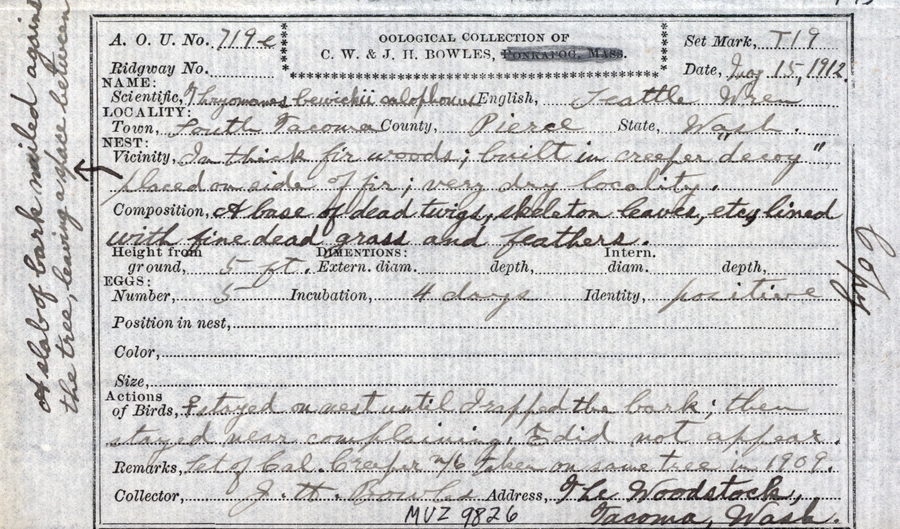 A. O. U. No. 719-e
OOLOGICAL COLLECTION OF
C. W. & J. H. BOWLES, PONKAPOG, MASS.
Set Mark, T19
Ridgway No.
Date, May 15, 1912
NAME:
Scientific, Thryomanes bewickii calophonus English, Seattle Wren
LOCALITY:
Town, South Tacoma County, Pierce State, Wash.
NEST:
Vicinity, In thick fir woods; built in "creeper decoy"
placed on side of fir; very dry locality.
Composition, A base of dead twigs, skeleton leaves, etc, lined
with fine dead grass and feathers.
Height from ground, 5 ft. DIMENTIONS: Extern. diam. depth, Intern. diam. depth,
EGGS:
Number, 5 Incubation, 4 days Identity, positive
Position in nest,
Color,
Size,
Actions of Birds, ♀ stayed on nest until I rapped the bark; then
stayed near complaining. ♂ did not appear.
Remarks, Set of Cal. Creeper n/6 taken on same tree in 1909.
Collector, J. H. Bowles Address, The Woodstock,
Tacoma, Wash.
MVZ 9826
A slab of bark nailed against
the tree, leaving a space between
Copy